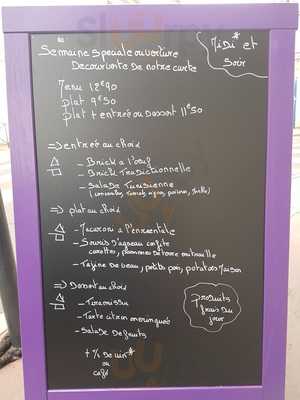 Semaine speciale ouverture
Decouverte de notre carte
Midi* et
Soir
Menu 12€90
plat 9€50
plat + entrée ou Dessert 11€50
=> entrée au choix
- Brick a l'oeuf
- Brick Traditionnelle
- Salade Tunisienne
=> plat au choix
- Macaron a l'orientale
- Souris d'agneau confite
carottes, pommes de terre
- Tajine de veau, petits pois, potatoes Maison
=> Dessert au choix
- Tiramissu
- Tarte citron meringuée
- Salade de fruits
produits
frais du
jour
+ 1/4 de vin*
ou
café